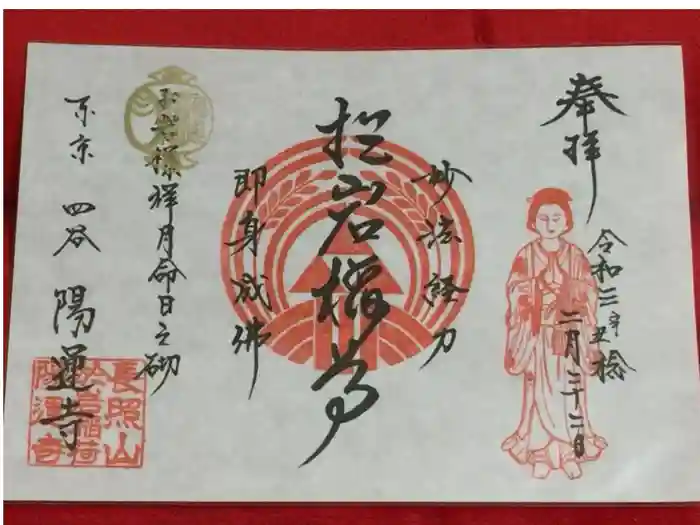 奉拝
令和三辛丑稔
二月二十二日
妙法経力
於岩稲荷
即身成佛
お岩様祥月命日之砌
東京 四谷 陽運寺
長照山
陽運寺